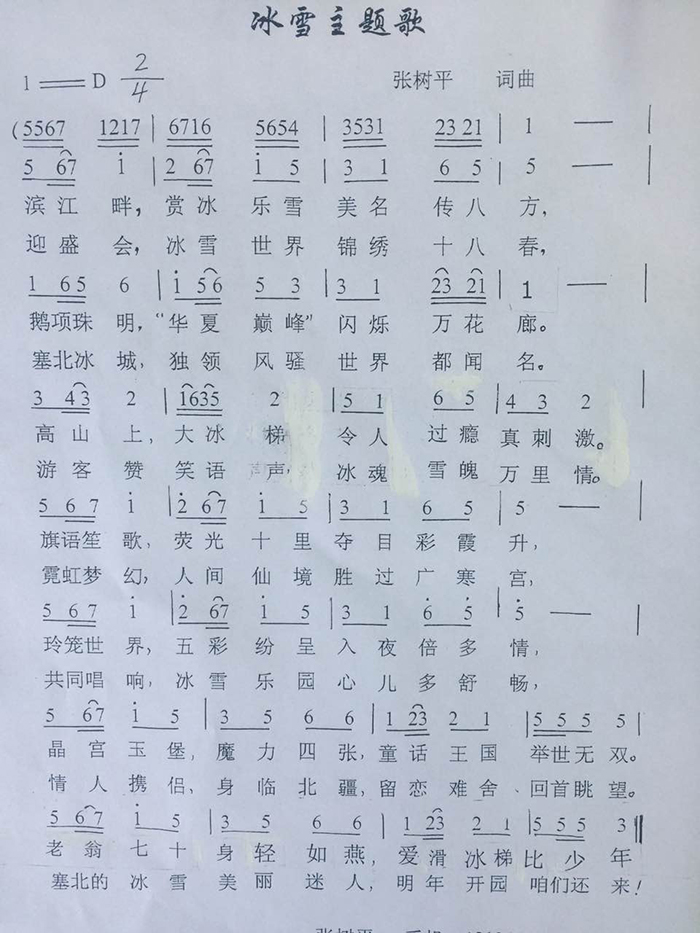 冰雪主题歌
1 = D 2/4 张树平 词曲
(5567 1217 | 6716 5654 | 3531 23 21 | 1 — |
5 67 i | 2 67 i 5 | 3 1 6 5 | 5 — |
滨江畔，赏冰乐雪美名传八方，
迎盛会，冰雪世界锦绣十八春，
1 65 6 | i 56 5 3 | 3 1 23 21 | 1 —
鹅项珠明，“华夏巅峰”闪烁万花廊。
塞北冰城，独领风骚世界都闻名。
3 43 2 | i635 2 | 5 1 6 5 | 4 3 2
高山上，大冰梯令人过瘾真刺激。
游客赞笑语声声冰魂雪魄万里情。
5 67 i | 2 67 i 5 | 3 1 6 5 | 5 —
旗语笙歌，荧光十里夺目彩霞升，
霓虹梦幻，人间仙境胜过广寒宫，
5 67 i | 2 67 i 5 | 3 1 6 5 | 5 —
玲笼世界，五彩纷呈入夜倍多情，
共同唱响，冰雪乐园心儿多舒畅，
5 67 i 5 | 3 5 6 6 | 1 23 2 1 | 5 5 5 5 |
晶宫玉堡，魔力四张，童话王国举世无双。
情人携侣，身临北疆，留恋难舍回首眺望。
5 67 i 5 | 3 5 6 6 | 1 23 2 1 | 5 5 5 3 ‖
老翁七十身轻如燕，爱滑冰梯比少年
塞北的冰雪美丽迷人，明年开园咱们还来！
张树平